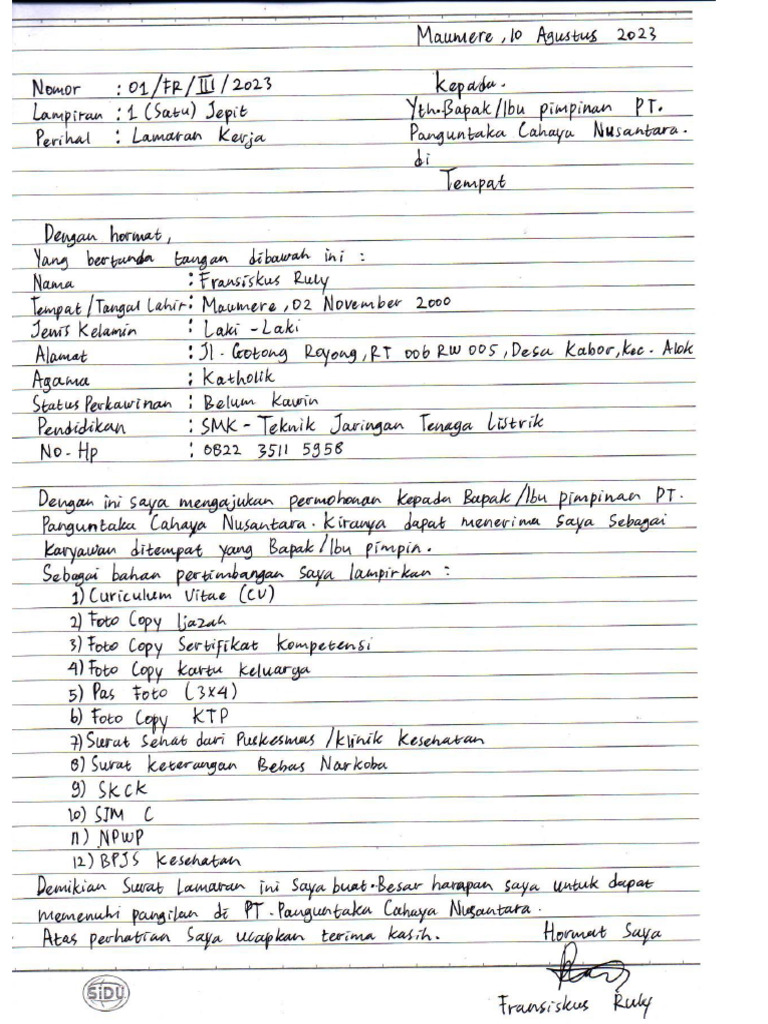 Maumere, 10 Agustus 2023
Nomor : 01/FR/III/2023
Kepada.
Lampiran : 1 (Satu) Jepit
Yth. Bapak/Ibu pimpinan PT.
Perihal : Lamaran Kerja
Panguntaka Cahaya Nusantara.
di
Tempat
Dengan hormat,
Yang bertanda tangan dibawah ini :
Nama : Fransiskus Ruly
Tempat/Tangal Lahir : Maumere, 02 November 2000
Jenis Kelamin : Laki-Laki
Alamat : Jl. Gotong Royong, RT 006 RW 005, Desa Kabor, Kec. Alok
Agama : Katholik
Status Perkawinan : Belum Kawin
Pendidikan : SMK - Teknik Jaringan Tenaga Listrik
No-Hp : 0822 3511 5958
Dengan ini saya mengajukan permohonan kepada Bapak/Ibu pimpinan PT.
Panguntaka Cahaya Nusantara. Kiranya dapat menerima saya sebagai
karyawan ditempat yang Bapak/Ibu pimpin.
Sebagai bahan pertimbangan saya lampirkan :
1) Curiculum Vitae (CV)
2) Foto Copy Ijazah
3) Foto Copy Sertifikat kompetensi
4) Foto Copy kartu keluarga
5) Pas Foto (3x4)
6) Foto Copy KTP
7) Surat Sehat dari Puskesmas/Klinik Kesehatan
8) Surat keterangan Bebas Narkoba
9) SKCK
10) SIM C
11) NPWP
12) BPJS Kesehatan
Demikian Surat Lamaran ini saya buat. Besar harapan saya untuk dapat
memenuhi pangilan di PT. Panguntaka Cahaya Nusantara.
Atas perhatian Saya ucapkan terima kasih.
Hormat Saya
SiDU
Fransiskus Ruly